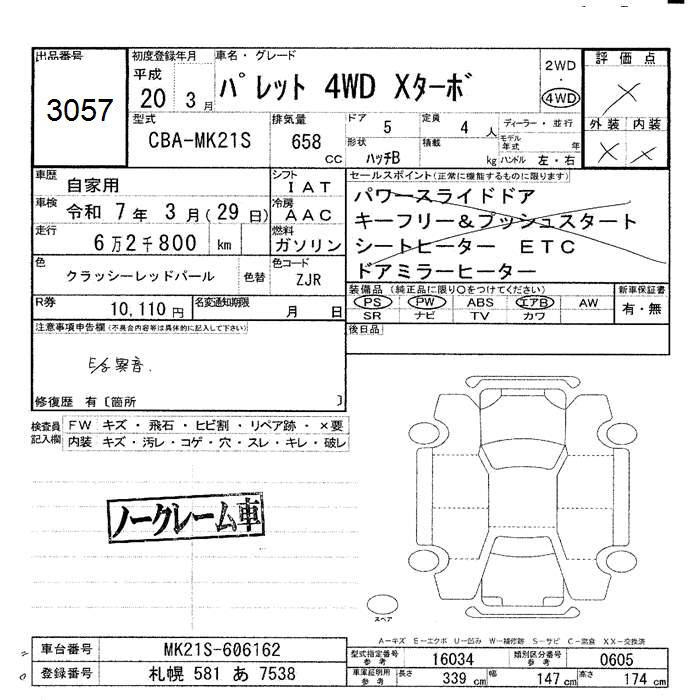 出品番号
3057
初度登録年月
平成
20 3月
車名・グレード
パレット 4WD Xターボ
2WD
・
4WD
評価点
×
外装 内装
× ×
型式
CBA-MK21S
排気量
658
CC
ドア
5
定員
4人
ディーラー・並行
モデル年式 年
形状
ハッチB
積載
kg
ハンドル 左・右
車歴
自家用
シフト
IAT
車検
令和 7年 3月(29日)
冷房
AAC
走行
6万2千800 km
燃料
ガソリン
色
クラッシーレッドパール
色替
色コード
ZJR
R券
10,110円
名変通知期限
月 日
セールスポイント(正常に機能するものに限ります)
パワースライドドア
キーフリー&プッシュスタート
シートヒーター ETC
ドアミラーヒーター
装備品 (純正品に限り○をつけてください)
PS PW ABS エアB AW
SR ナビ TV カワ
新車保証書
有・無
後日品
注意事項申告欄(不具合内容等は具体的に記入して下さい)
E/G異音.
修復歴 有〔箇所 〕
検査員
記入欄
FW キズ・飛石・ヒビ割・リペア跡・×要
内装 キズ・汚レ・コゲ・穴・スレ・キレ・破レ
ノークレーム車
スペア
A-キズ E-エクボ U-凹み W-補修跡 S-サビ C-腐食 XX-交換済
車台番号
MK21S-606162
型式指定番号
参考
16034
類別区分番号
参考
0605
登録番号
札幌 581 あ 7538
車庫証明用
参考
長さ 339 cm 幅 147 cm 高さ 174 cm